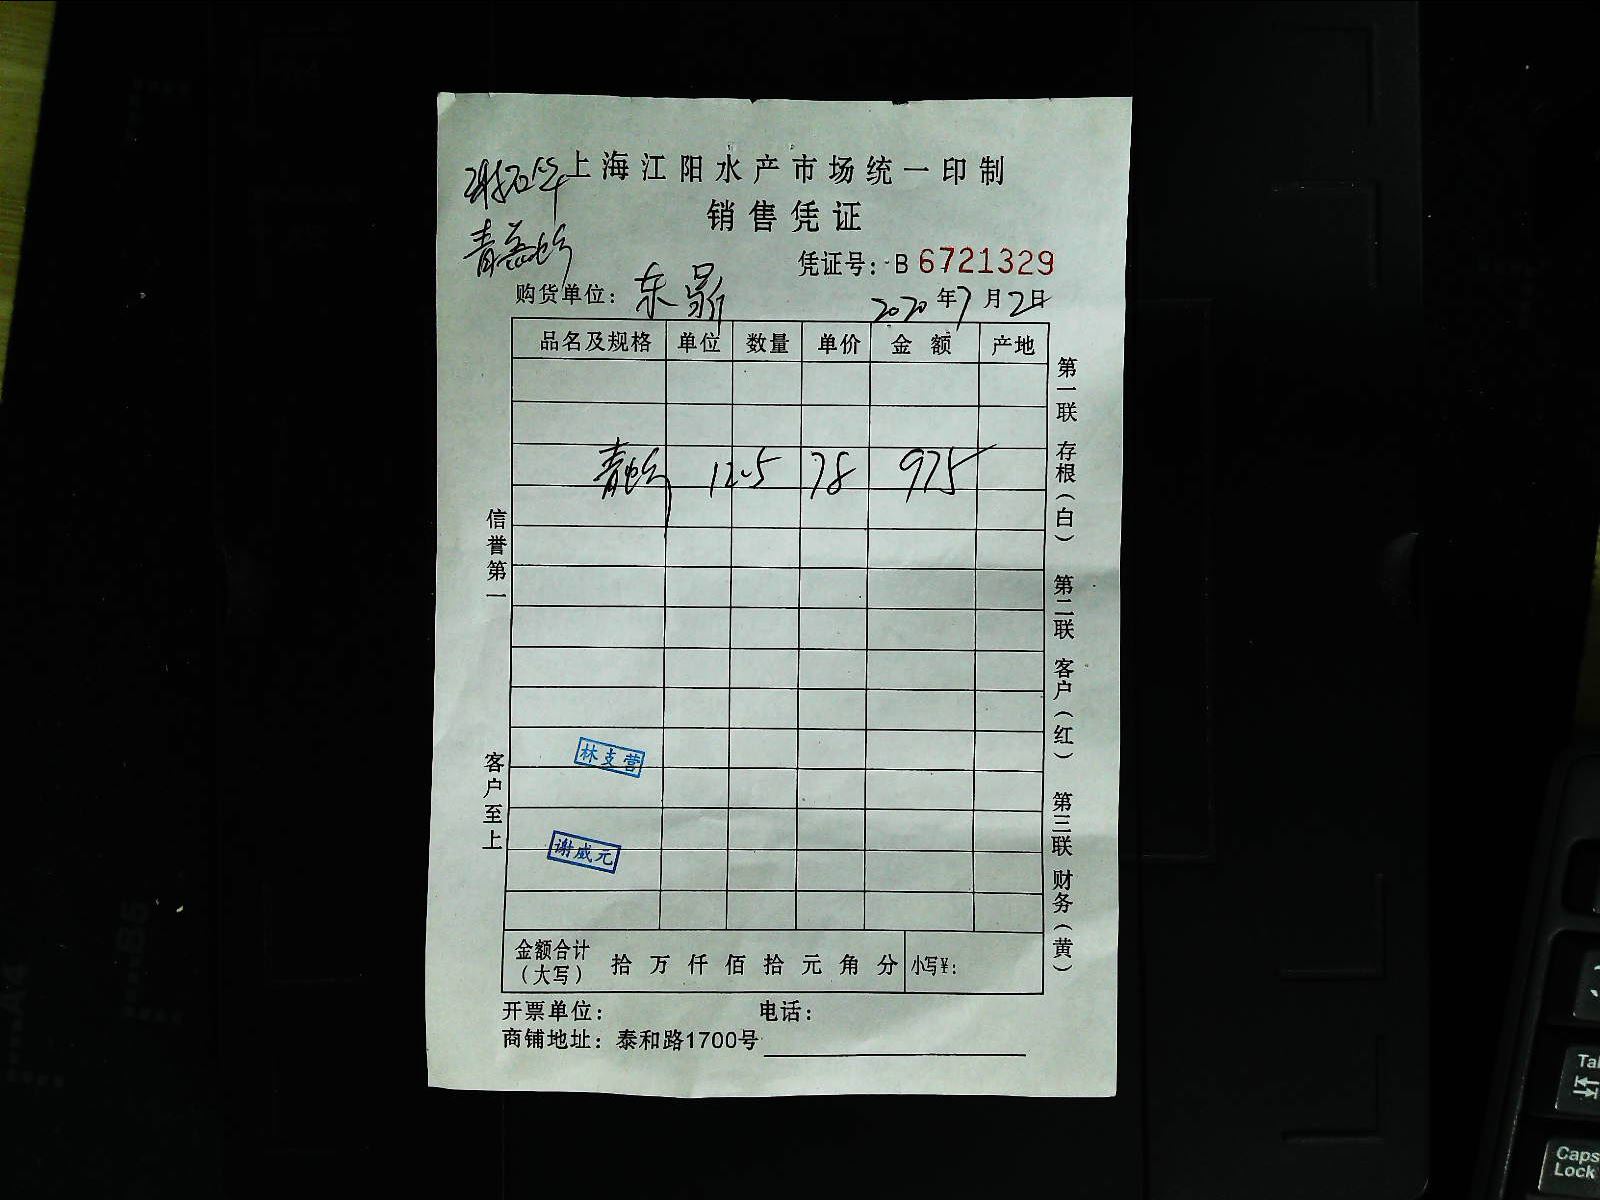 上海江阳水产市场统一印制
销售凭证
凭证号：B 6721329
购货单位：东
2020年7月2日
品名及规格 单位 数量 单价 金额 产地
青 12.5 78 975
信誉第一
客户至上
林支营
谢威元
第一联 存根（白） 第二联 客户（红） 第三联 财务（黄）
金额合计（大写） 拾 万 仟 佰 拾 元 角 分 小写¥：
开票单位： 电话：
商铺地址：泰和路1700号
A4
B5
Tab
Caps Lock